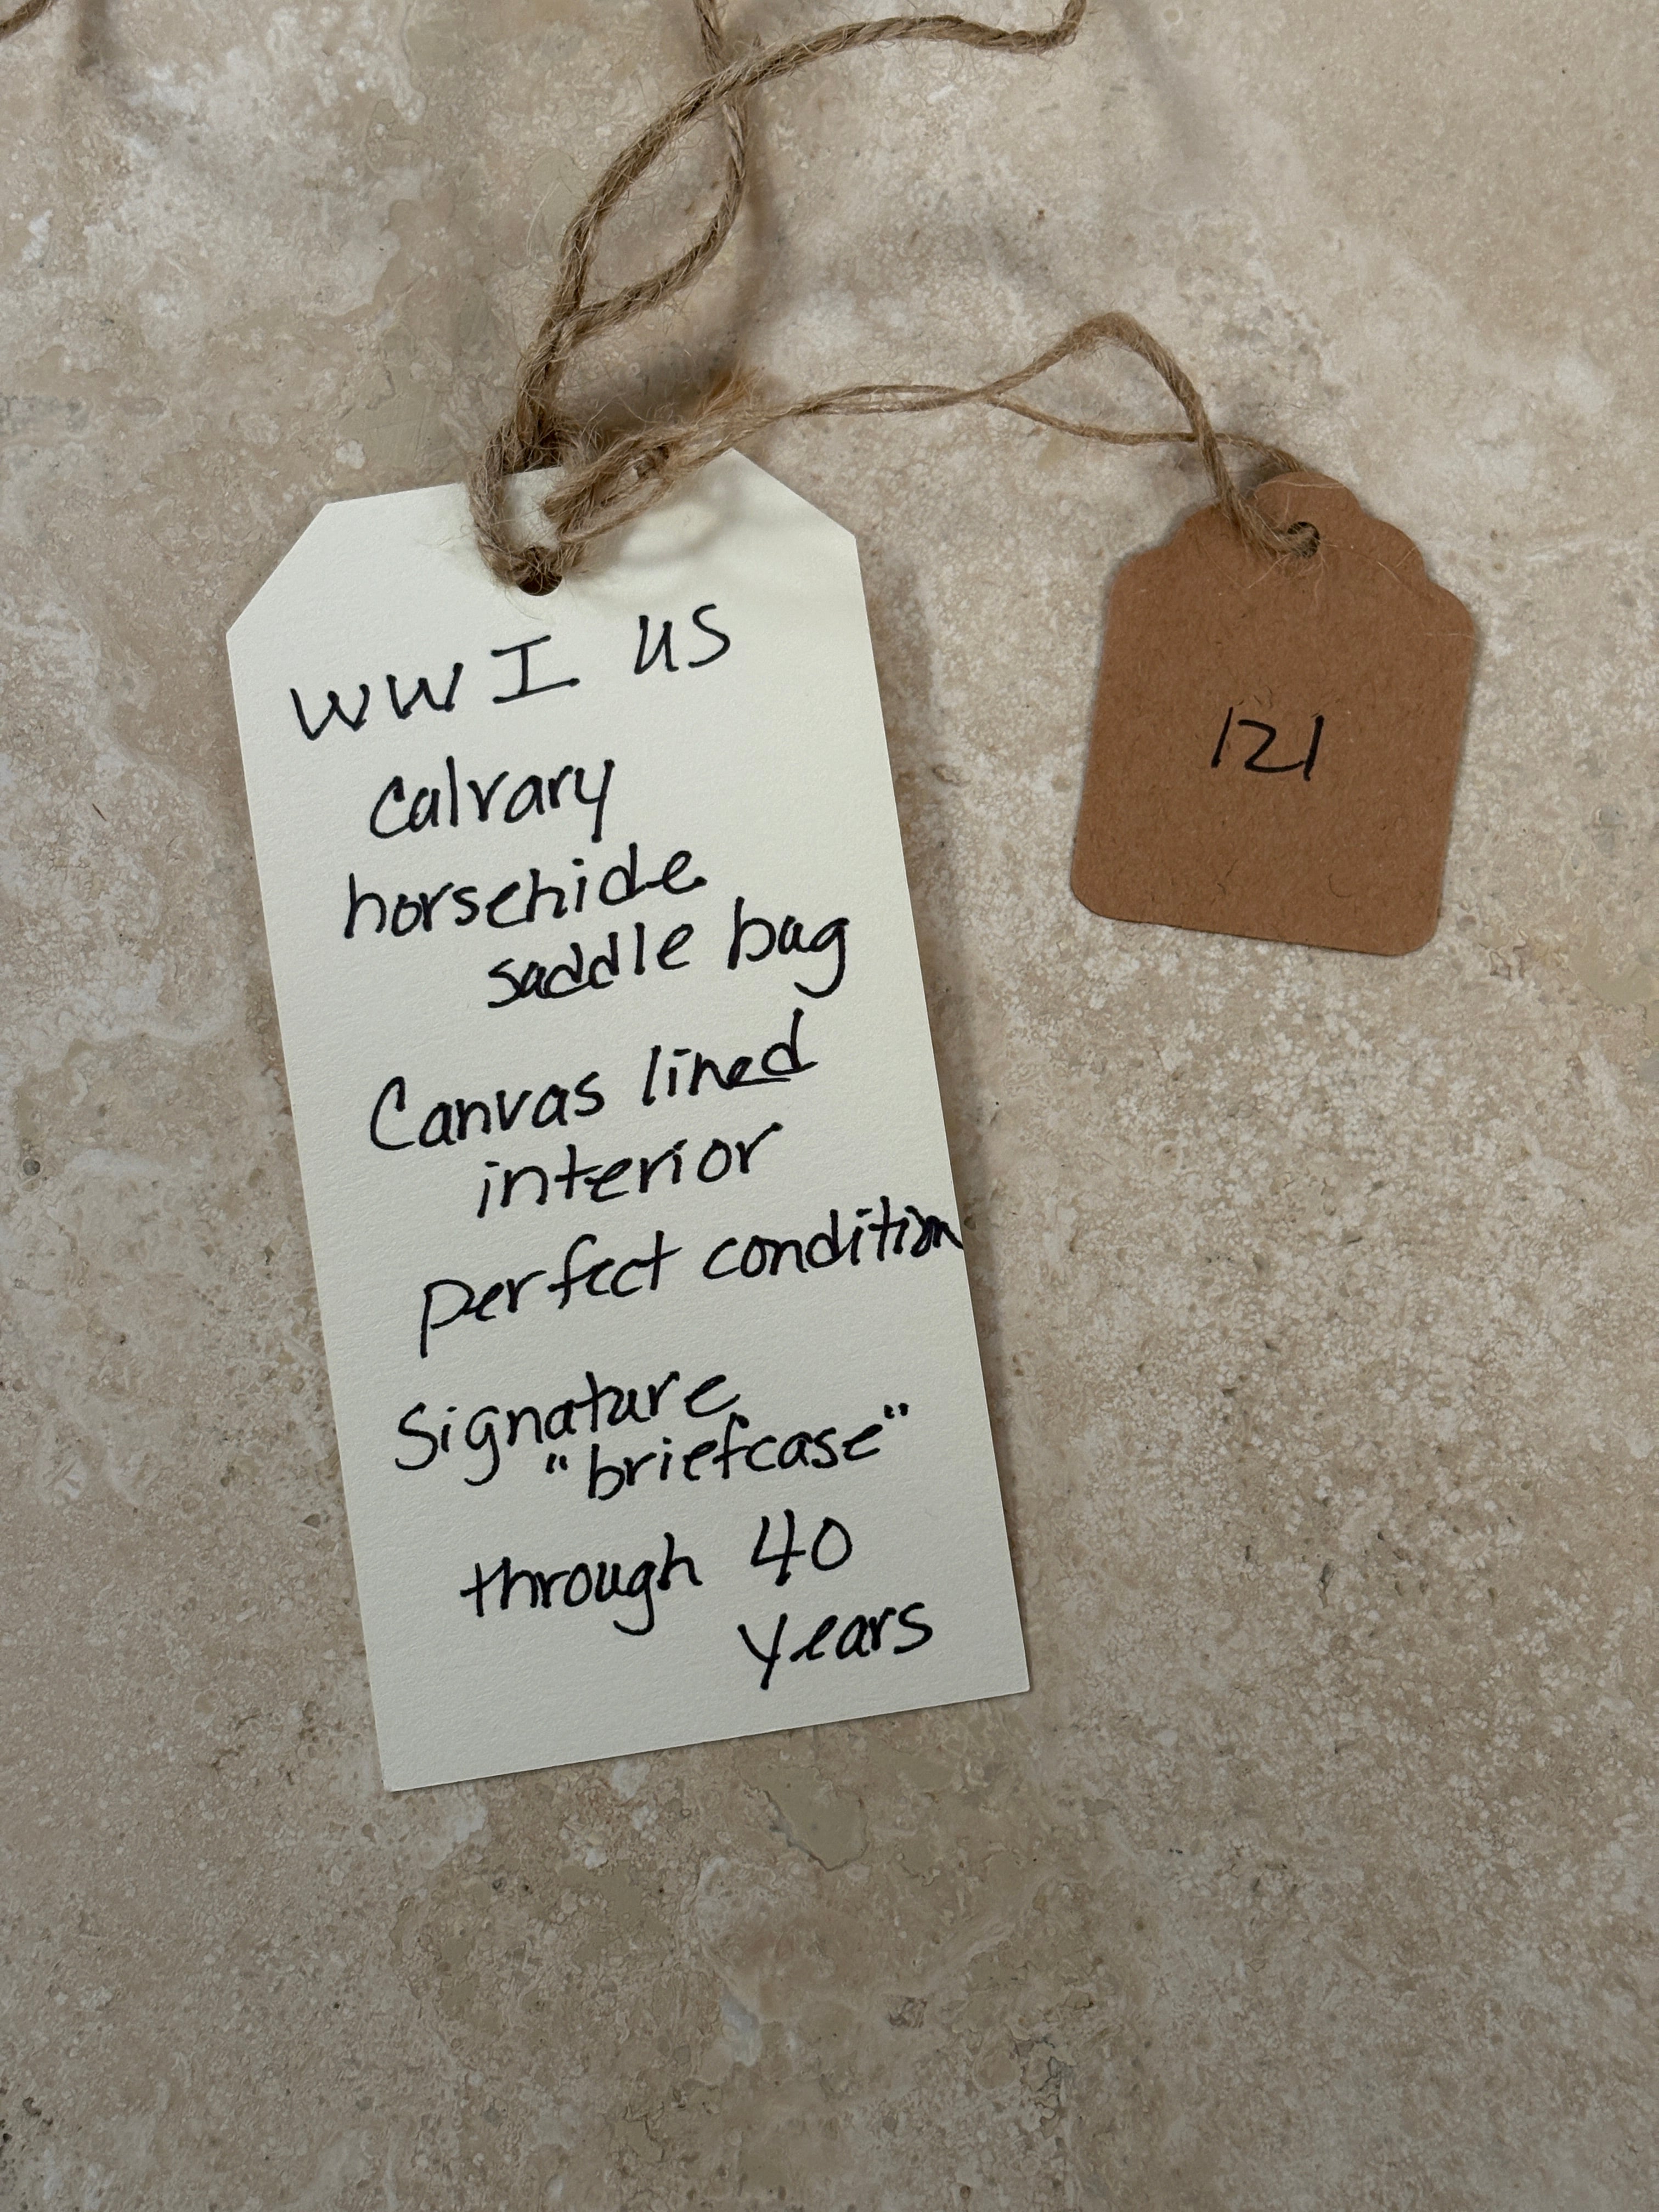 WW I US
Calvary
horsehide
saddle bag
Canvas lined
interior
perfect condition
Signature
"briefcase"
through 40
years
121